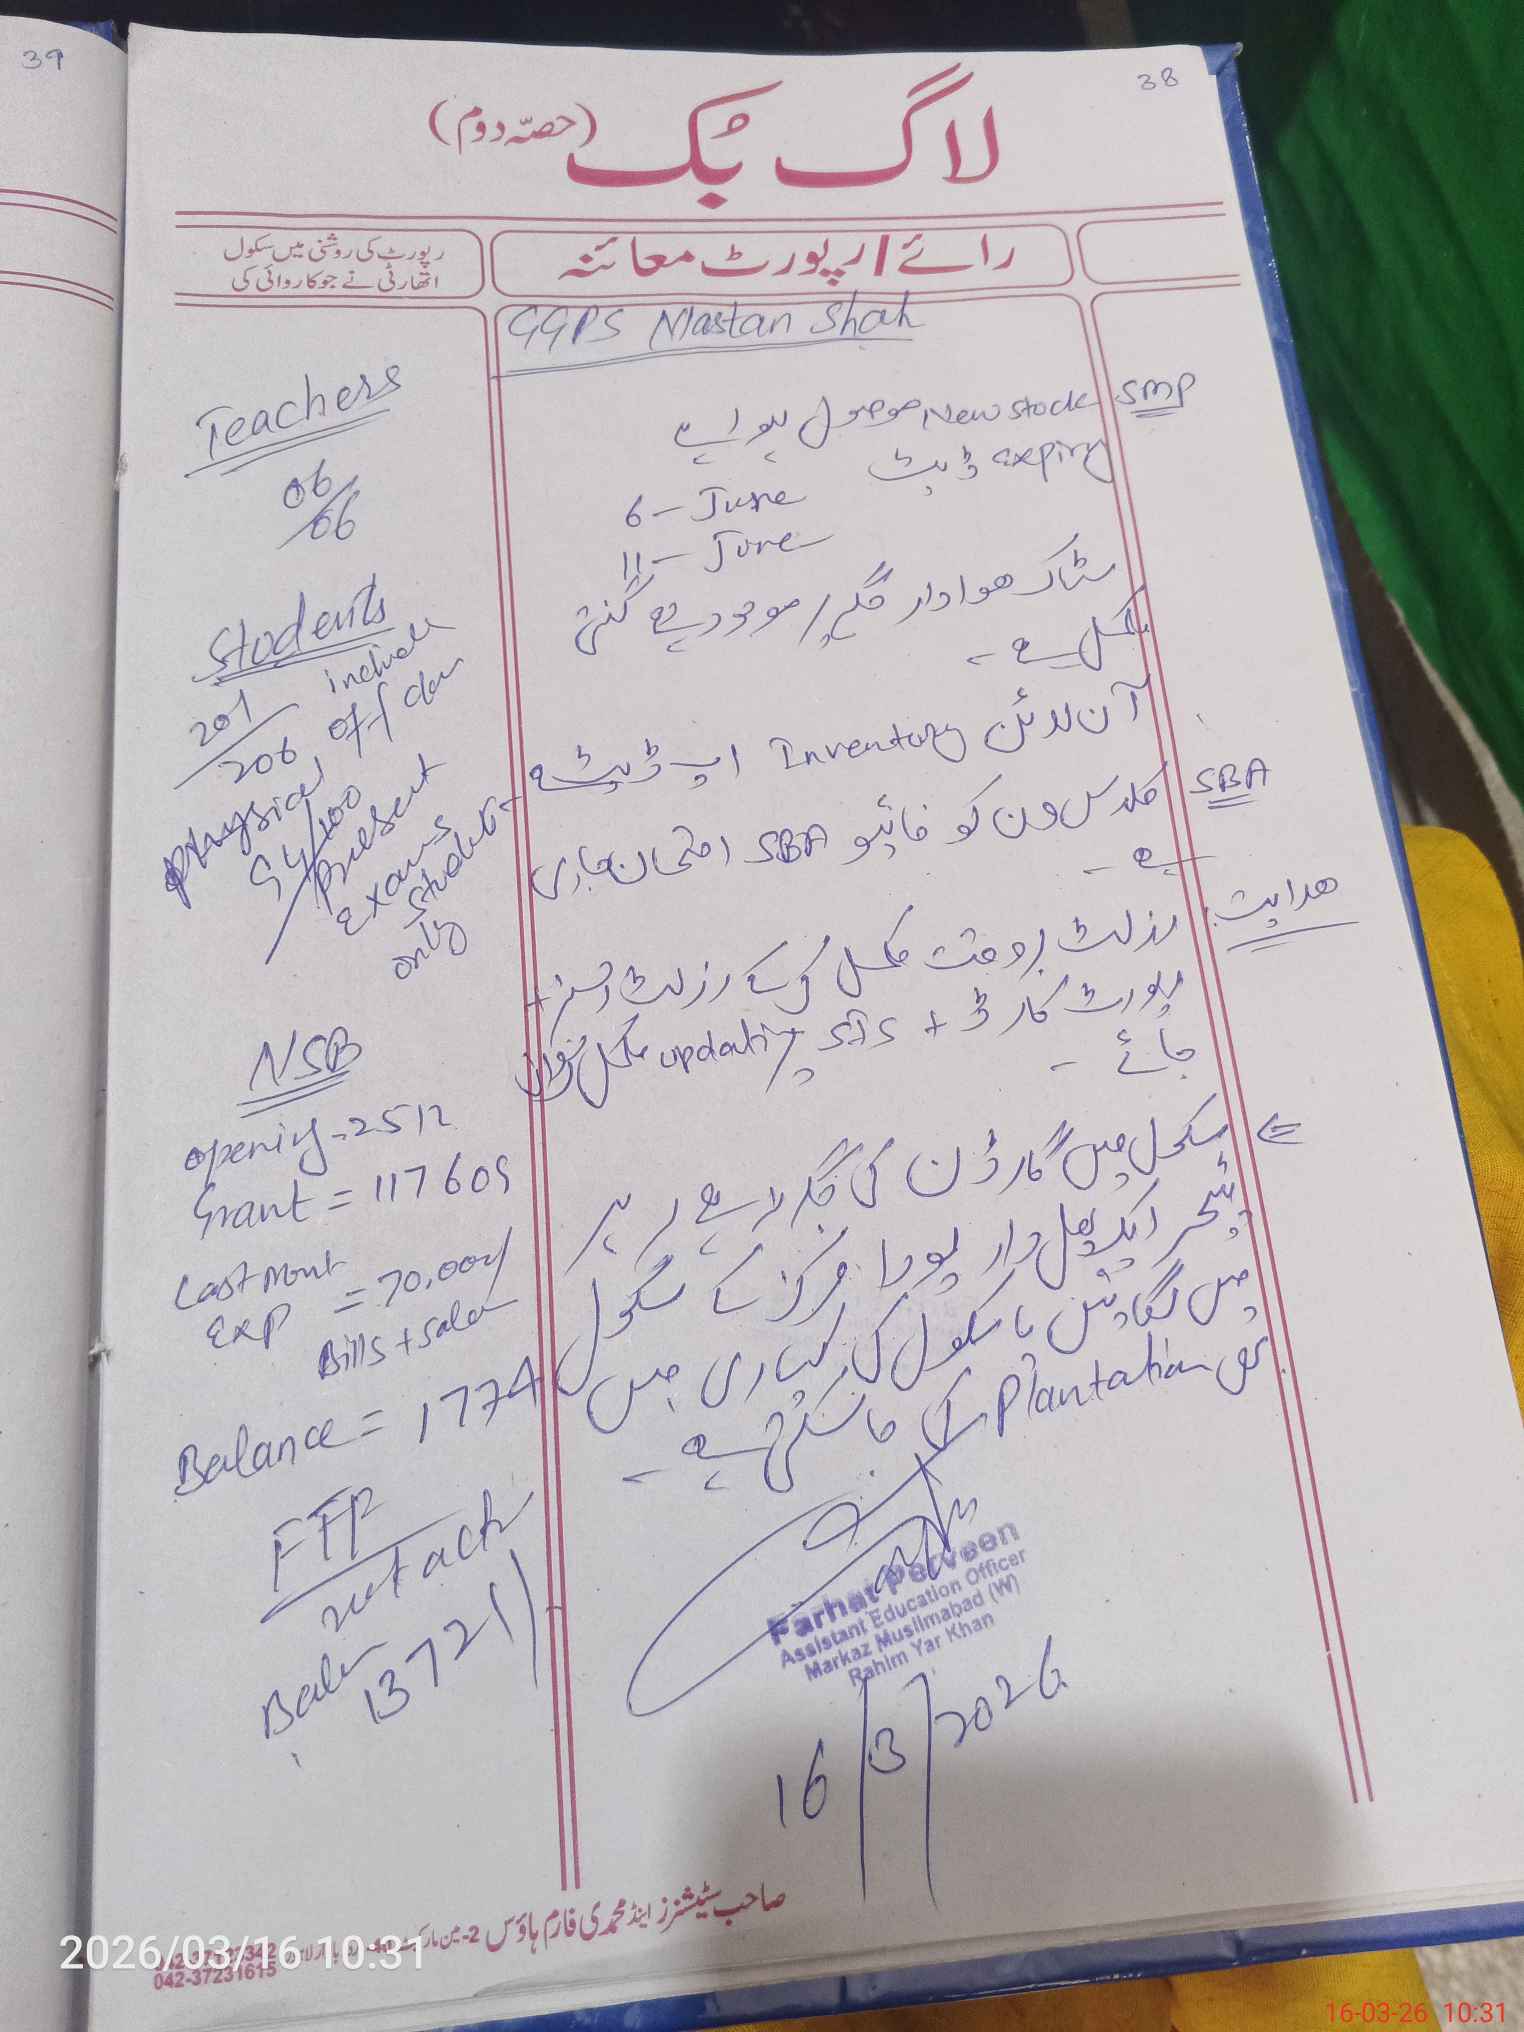 39
38
لاگ بُک (حصّہ دوم)
رائے / رپورٹ معائنہ
رپورٹ کی روشنی میں سکول
اتھارٹی نے جو کاروائی کی
GGPS Mastan Shah
SMP
New stock موصول ہوا ہے
expiry ڈیٹ
6 - June
11 - June
سٹاک ھوا دار جگہ پر موجود ہے گنتی
مکمل ہے ۔
آن لائن Inventory اپ ڈیٹ ہے ۔
SBA
کلاس ون کو فائیو SBA امتحان جاری
ہے ۔
ھدایت:
رزلٹ بروقت مکمل کر کے رزلٹ +
رپورٹ کارڈ + SIS پر updating مکمل
جائے ۔
سکول میں گارڈن کی جگہ
ٹیچر ایک پھل دار پودا مرکز کے سکول
میں لگائیں یا سکول کی کیاری میں
بھی Plantation کی جا سکتی ہے ۔
Teachers
06/06
Students
201/206 include
off class
Physical
94/100
present
exams
students
only
NSB
Opening - 2512
Grant = 117609
Last Mont
Exp = 70,000/
Bills +
Balance = 1774
FTF
13721/-
Farhat Perveen
Assistant Education Officer
Markaz Muslimabad (W)
Rahim Yar Khan
16/3/2026
صاحب سٹیشنرز اینڈ محمدی فارم ہاؤس 2-مین مارکیٹ
042-37231615
2026/03/16 10:31
16-03-26 10:31